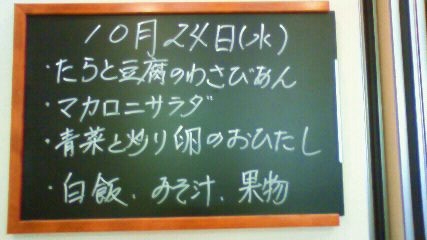 10月24日(水)
・たらと豆腐のわさびあん
・マカロニサラダ
・青菜と炒り卵のおひたし
・白飯、みそ汁、果物